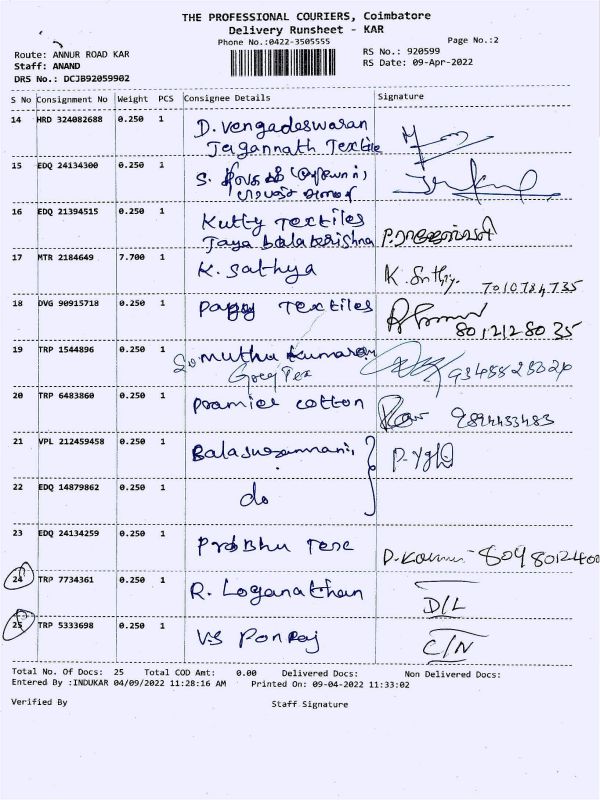 THE PROFESSIONAL COURIERS, Coimbatore
Delivery Runsheet - KAR
Phone No.:0422-3505555
Page No.:2
Route: ANNUR ROAD KAR
RS No.: 920599
Staff: ANAND
RS Date: 09-Apr-2022
DRS No.: DCJB92059902
S No Consignment No Weight PCS Consignee Details Signature
14 HRD 324082688 0.250 1 D. Vengadeswaran
Jagannath Textile
15 EDQ 24134300 0.250 1 S.
16 EDQ 21394515 0.250 1 Kutty Textiles
Jaya balakrishna
17 MTR 2184649 7.700 1 K. Sathya K. Sathya 7010784735
18 DVG 90915718 0.250 1 Pappy Textiles 8012128035
19 TRP 1544896 0.250 1 Muthu Kumaran
Grey Tex
20 TRP 6483860 0.250 1 Pramier cotton 9894433483
21 VPL 212459458 0.250 1 Balasubramani,
22 EDQ 14879862 0.250 1 do
23 EDQ 24134259 0.250 1 Prabhu Texe 8098012400
24 TRP 7734361 0.250 1 R. Loganathan D/L
25 TRP 5333698 0.250 1 V.S Ponraj C/N
Total No. Of Docs: 25 Total COD Amt: 0.00 Delivered Docs: Non Delivered Docs:
Entered By :INDUKAR 04/09/2022 11:28:16 AM Printed On: 09-04-2022 11:33:02
Verified By Staff Signature